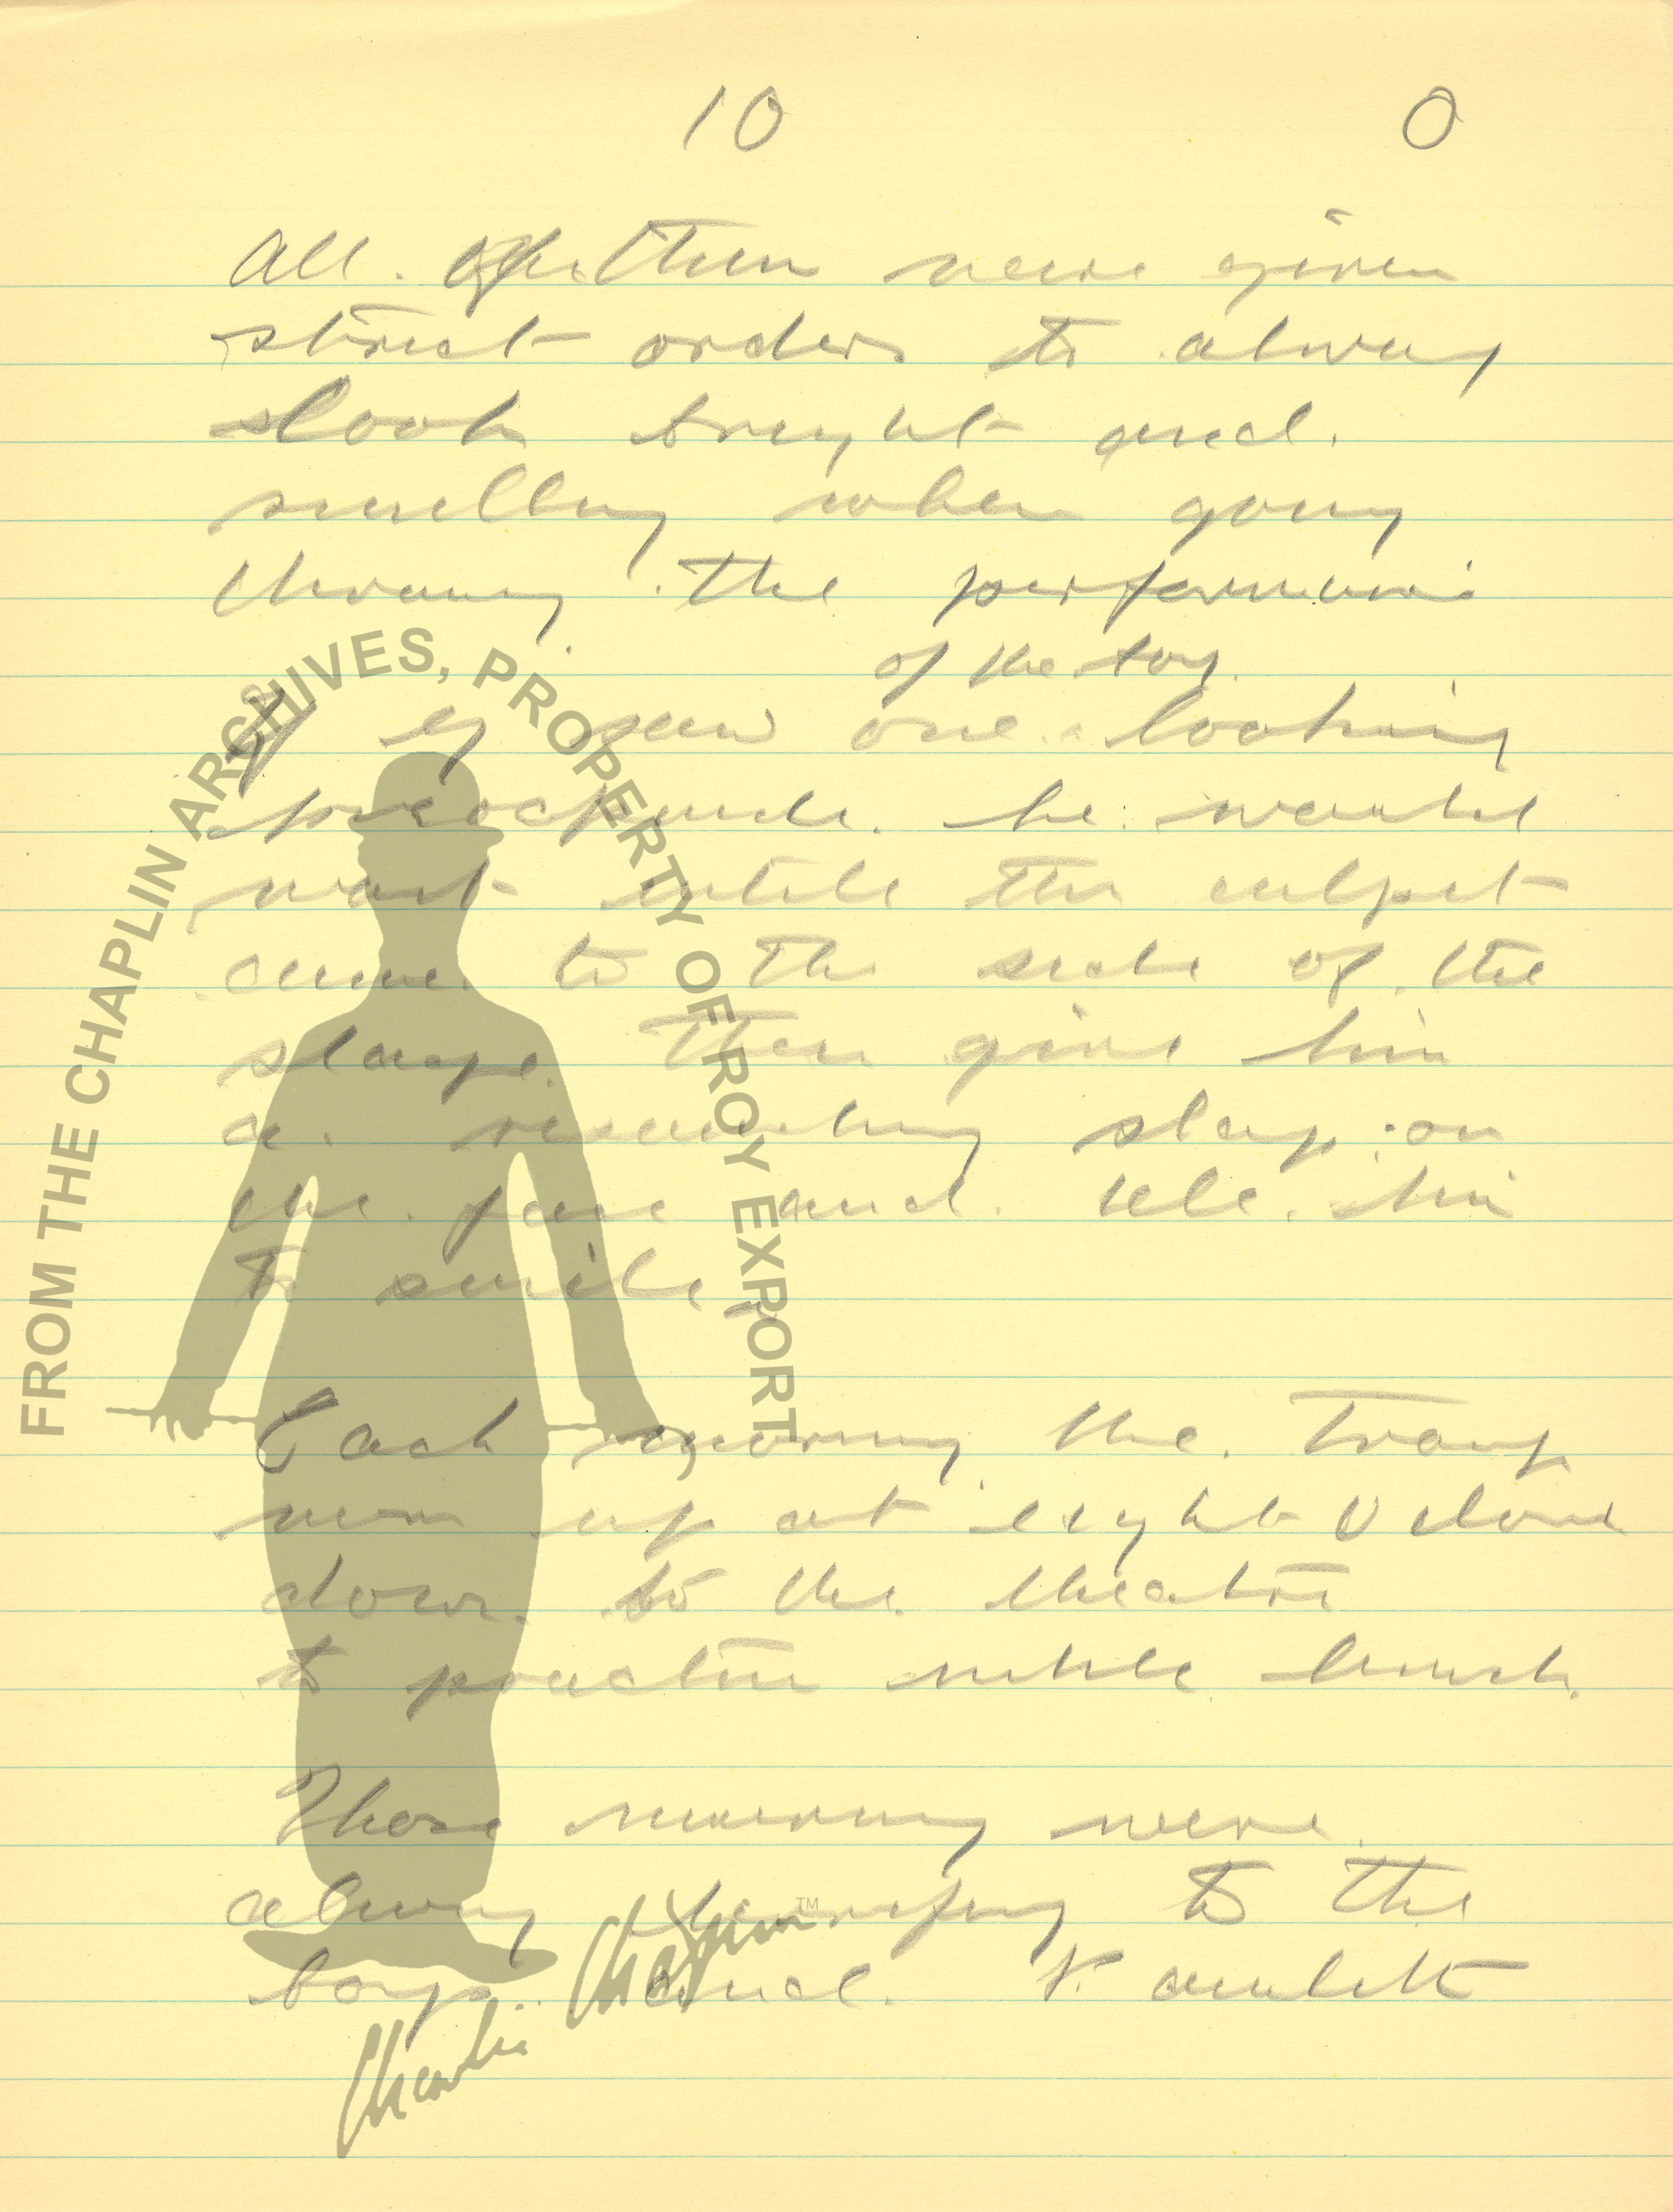 10 0
All of them were given
strict orders to alway
look bright and
smilling when going
through the performance
of the boy
If saw one looking
he would
wait untill the culprit
came to the side of the
stage then give him
a slap on
the face and tell him
to smile
Each morning the Troup
up at eight O clock
down to the theatre
to practice untill lunch.
Those morning were
alway to the
boys and
FROM THE CHAPLIN ARCHIVES, PROPERTY OF ROY EXPORT
Charlie Chaplin™